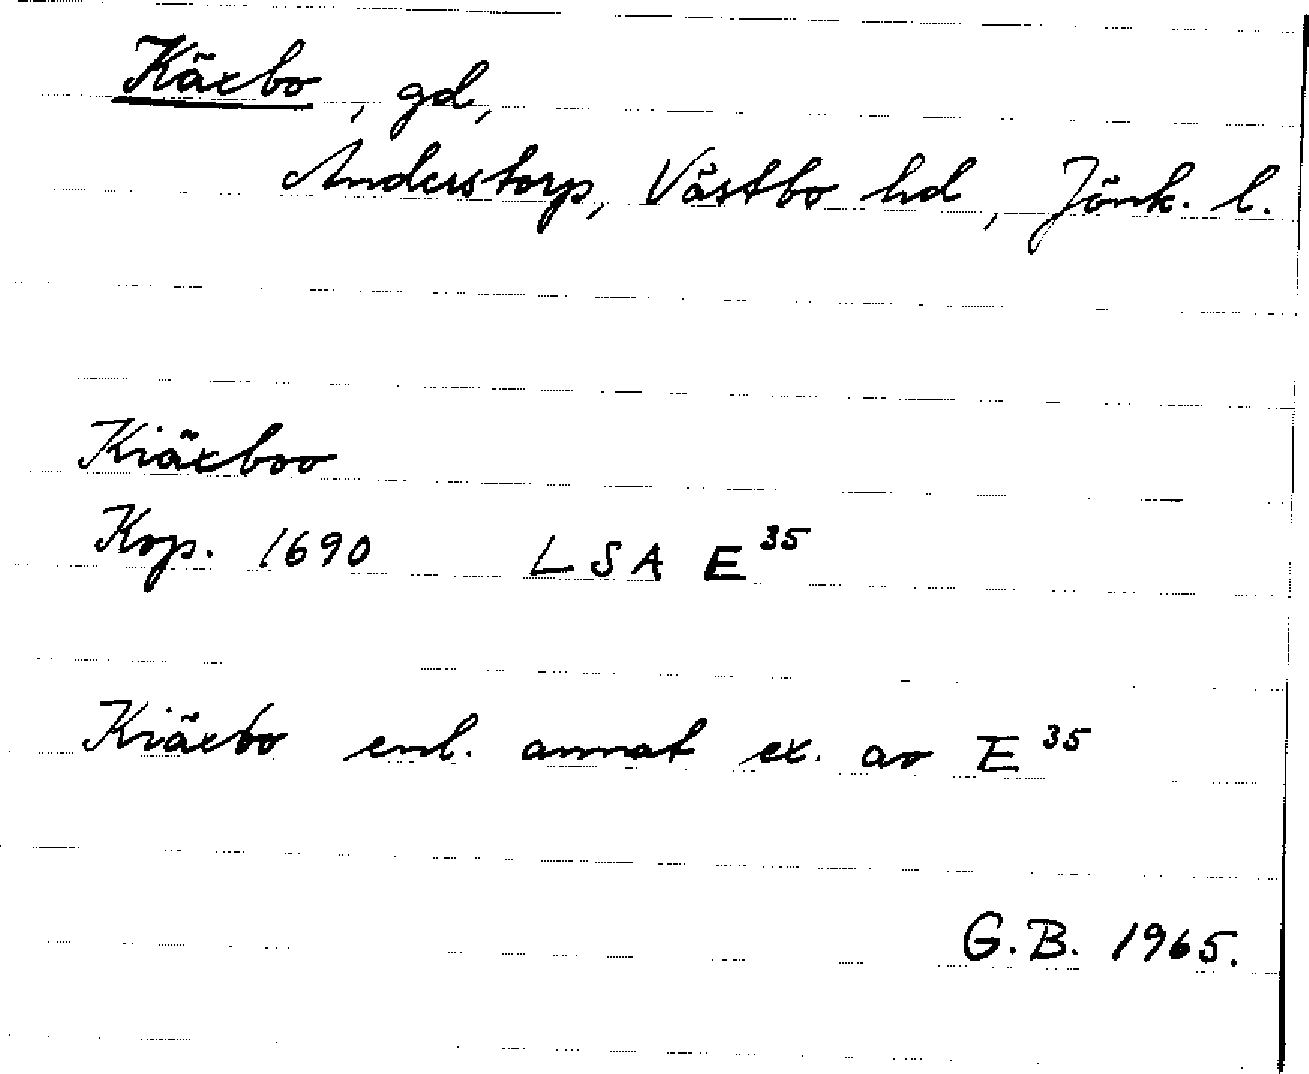 Käxbo, gd,
Anderstorp, Västbo hd, Jönk. l.
Kiäxboo
Kop. 1690 LSA E³⁵
Kiäxbo enl. annat ex. av E³⁵
G.B. 1965.